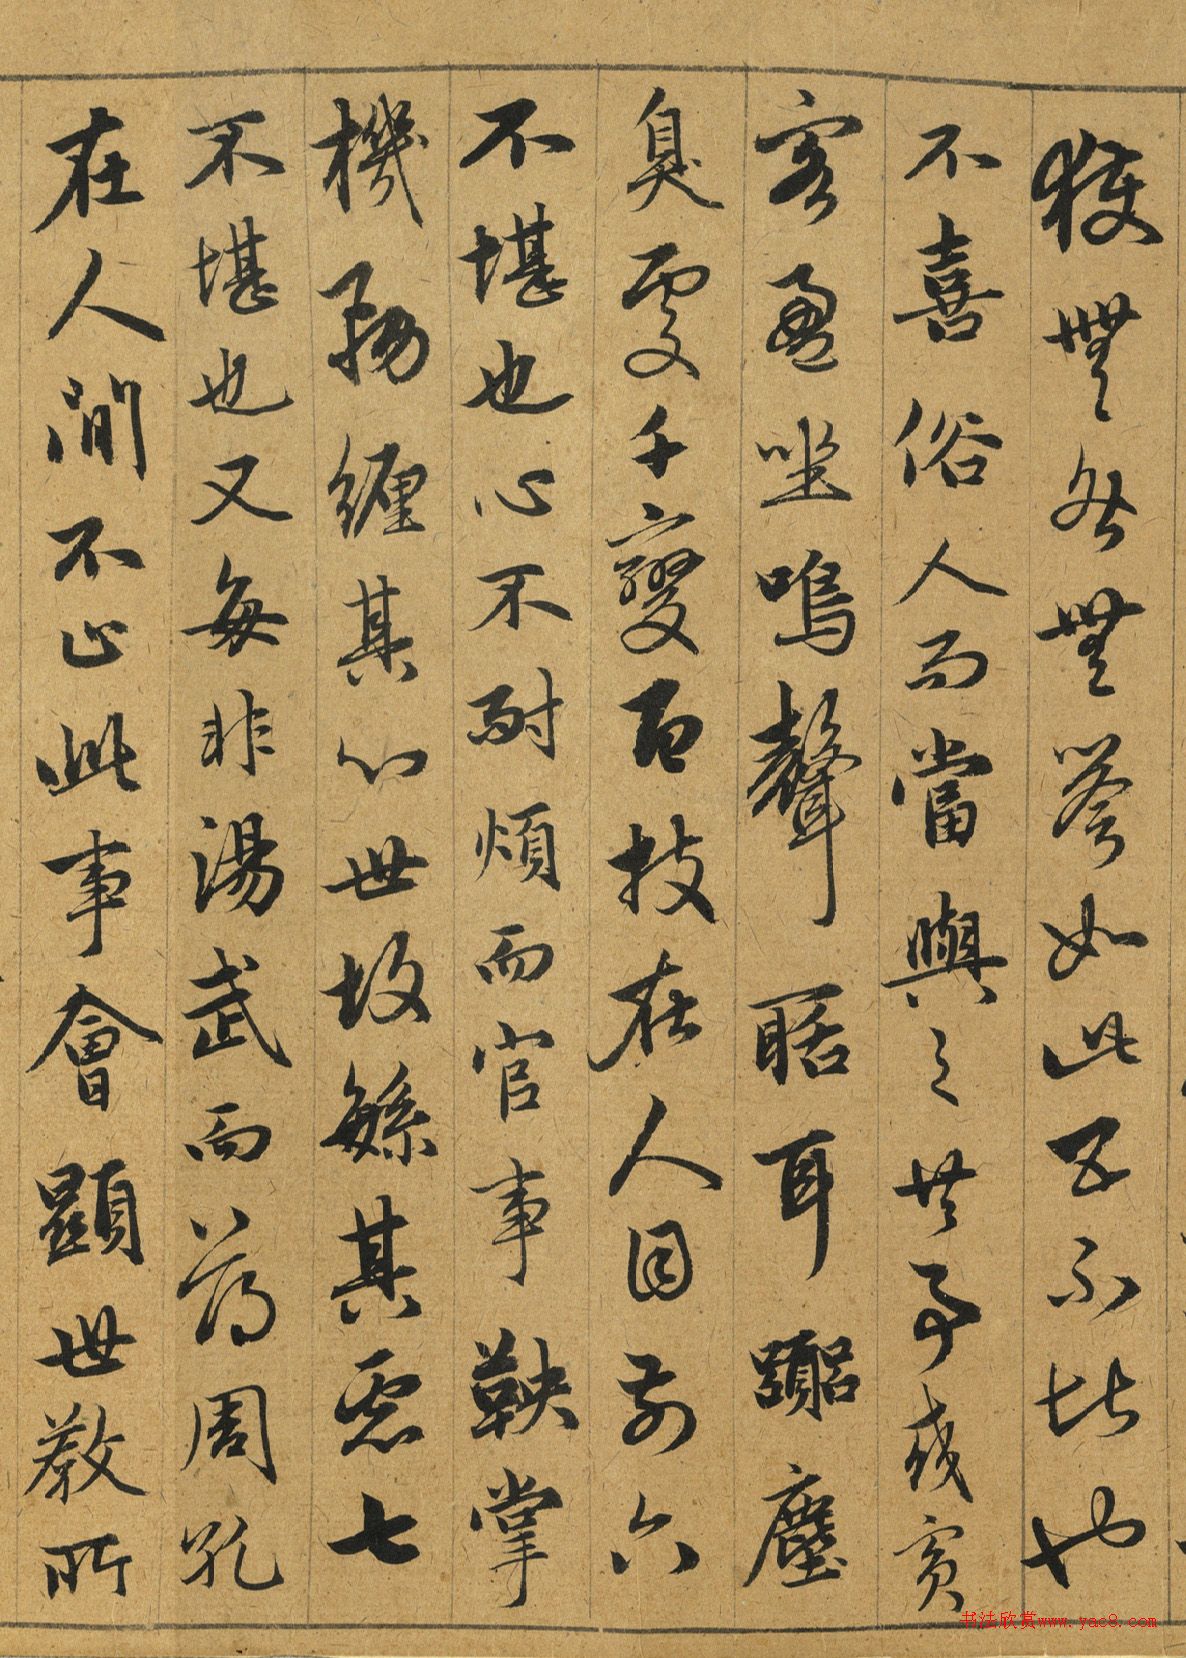 獲無咎無譽如此五不堪也
不喜俗人而當與之共事或賓
客盈坐鳴聲聒耳囂塵
臭處千變百技在人目前六
不堪也心不耐煩而官事鞅掌
機務纏其心世故緐其慮七
不堪也又每非湯武而薄周孔
在人間不止此事會顯世教所
书法欣赏www.yac8.com